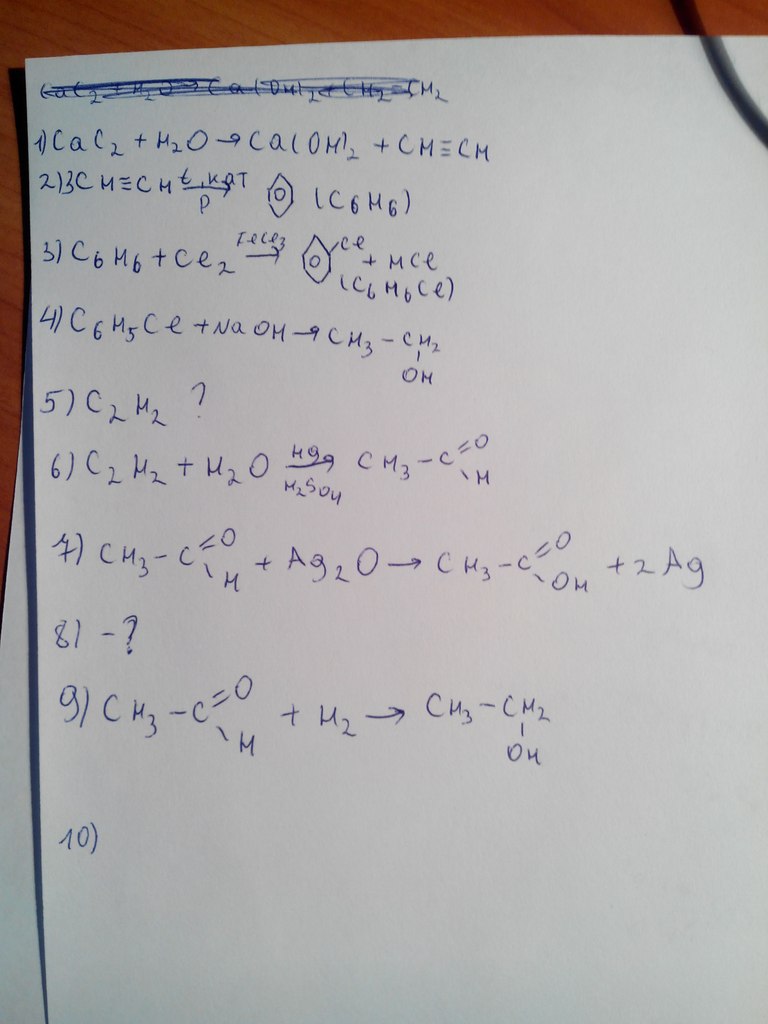 CaC2 + H2O → Ca(OH)2 + CH2=CH2
1) CaC2 + H2O → Ca(OH)2 + CH≡CH
2) 3CH≡CH t, кат → p (C6H6)
3) C6H6 + Cl2 FeCl3 → Cl + HCl
(C6H6Cl)
4) C6H5Cl + NaOH → CH3 - CH2
OH
5) C2H2 ?
6) C2H2 + H2O Hg → H2SO4 CH3 - C =O - H
7) CH3 - C =O - H + Ag2O → CH3 - C =O - OH + 2Ag
8) - ?
9) CH3 - C =O - H + H2 → CH3 - CH2
OH
10)